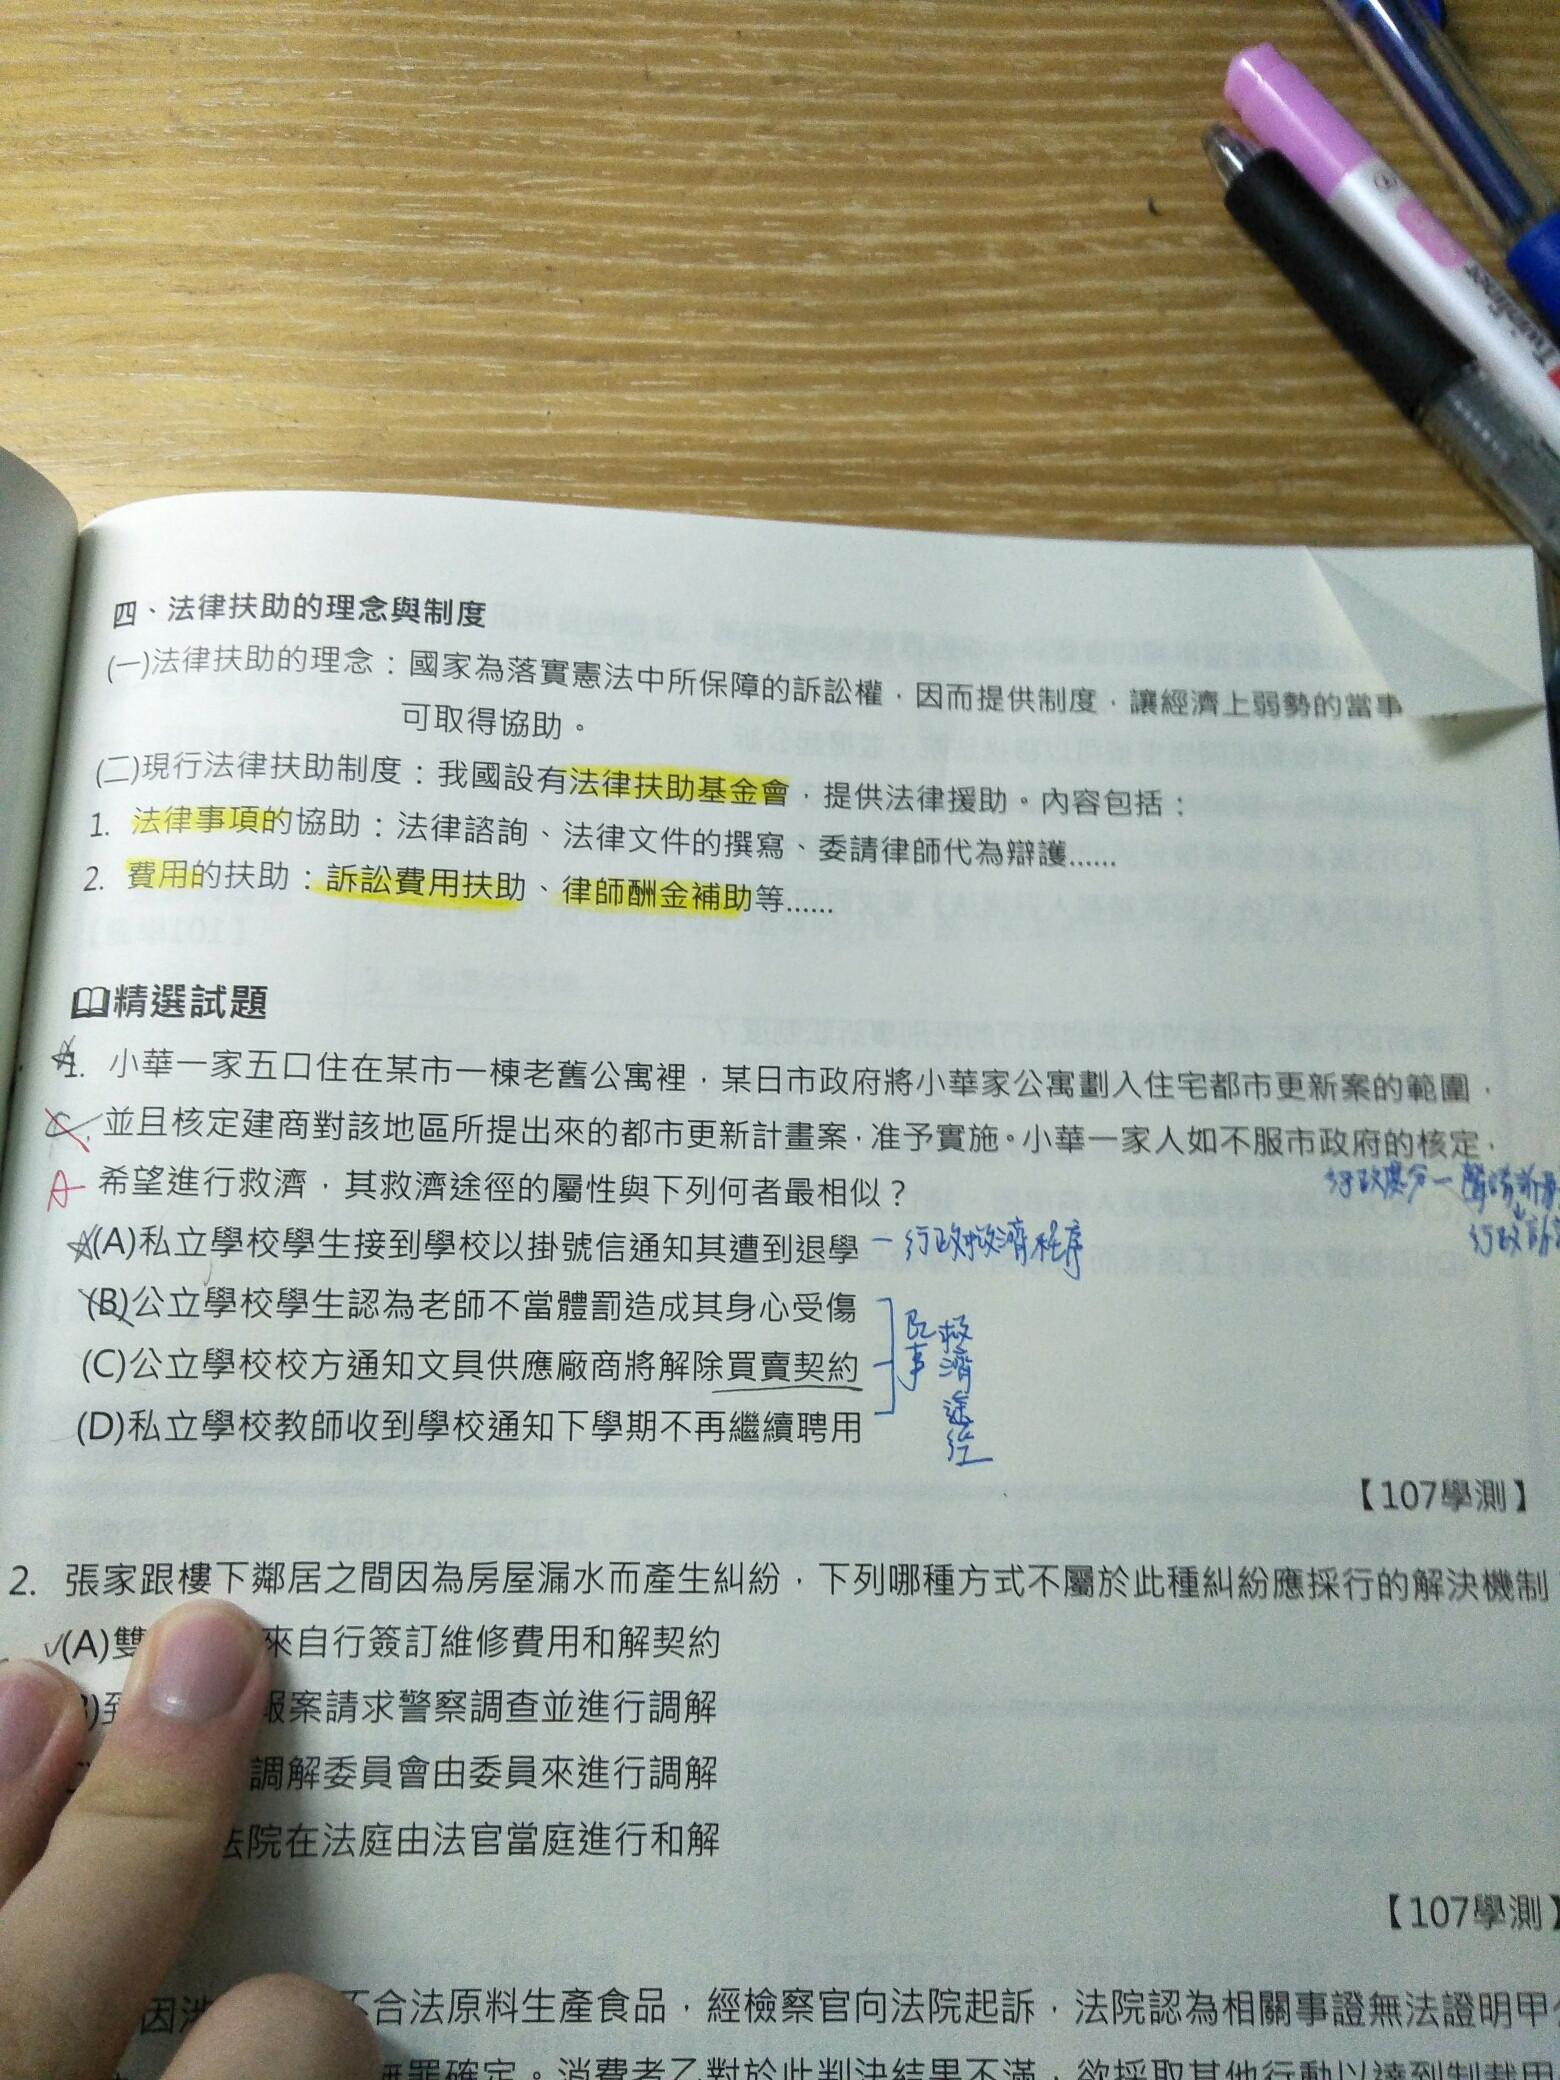 Twinliner
四、法律扶助的理念與制度
(一)法律扶助的理念：國家為落實憲法中所保障的訴訟權，因而提供制度，讓經濟上弱勢的當事
可取得協助。
(二)現行法律扶助制度：我國設有法律扶助基金會，提供法律援助。內容包括：
1. 法律事項的協助：法律諮詢、法律文件的撰寫、委請律師代為辯護......
2. 費用的扶助：訴訟費用扶助、律師酬金補助等......
精選試題
1. 小華一家五口住在某市一棟老舊公寓裡，某日市政府將小華家公寓劃入住宅都市更新案的範圍，
C. 並且核定建商對該地區所提出來的都市更新計畫案，准予實施。小華一家人如不服市政府的核定，
A 希望進行救濟，其救濟途徑的屬性與下列何者最相似？
行政處分一
行政
(A)私立學校學生接到學校以掛號信通知其遭到退學 - 行政救濟程序
(B)公立學校學生認為老師不當體罰造成其身心受傷
(C)公立學校校方通知文具供應廠商將解除買賣契約
(D)私立學校教師收到學校通知下學期不再繼續聘用
民事
救濟途徑
【107學測】
2. 張家跟樓下鄰居之間因為房屋漏水而產生糾紛，下列哪種方式不屬於此種糾紛應採行的解決機制
(A)雙 來自行簽訂維修費用和解契約
報案請求警察調查並進行調解
調解委員會由委員來進行調解
法院在法庭由法官當庭進行和解
【107學測】
因涉 不合法原料生產食品，經檢察官向法院起訴，法院認為相關事證無法證明甲
無罪確定。消費者乙對於此判決結果不滿，欲採取其他行動以達到制裁